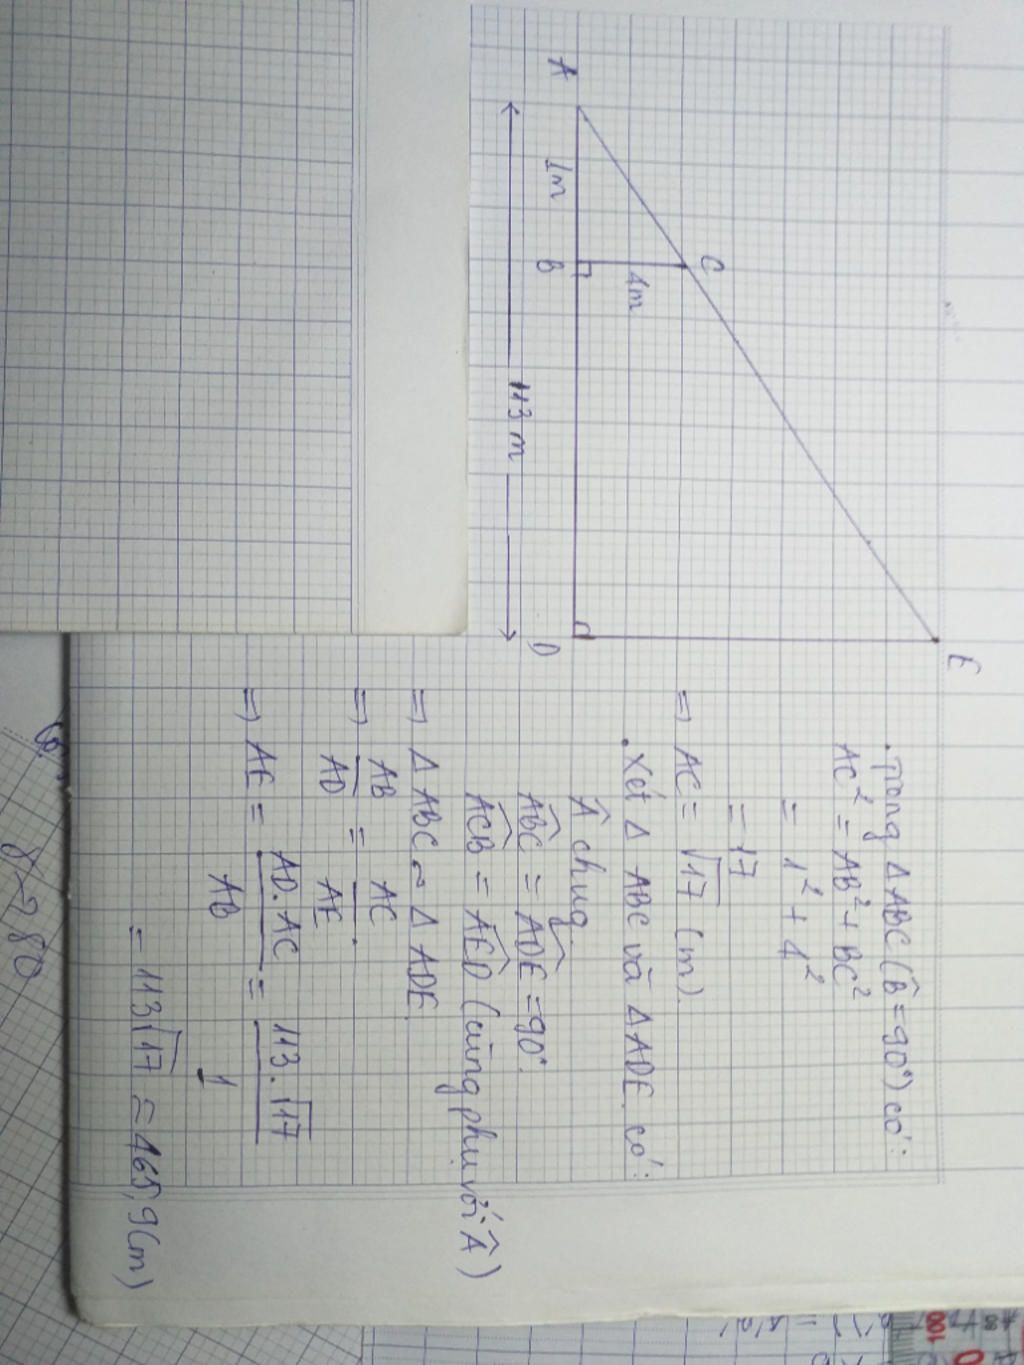 A
1m
B
C
4m
113 m
D
E
. Trong Δ ABC (B̂ = 90°) có:
AC² = AB² + BC²
= 1² + 4²
= 17
=) AC = √17 (m).
. Xét Δ ABC và Δ ADE có:
Â chug
ABC̑ = ADȆ = 90°.
ACB̑ = AED̑ (cùng phụ với Â)
=) Δ ABC ∽ Δ ADE.
=) AB/AD = AC/AE.
=) AE = AD.AC/AB = 113.√17/1
= 113√17 ≈ 465,9 (m)
100